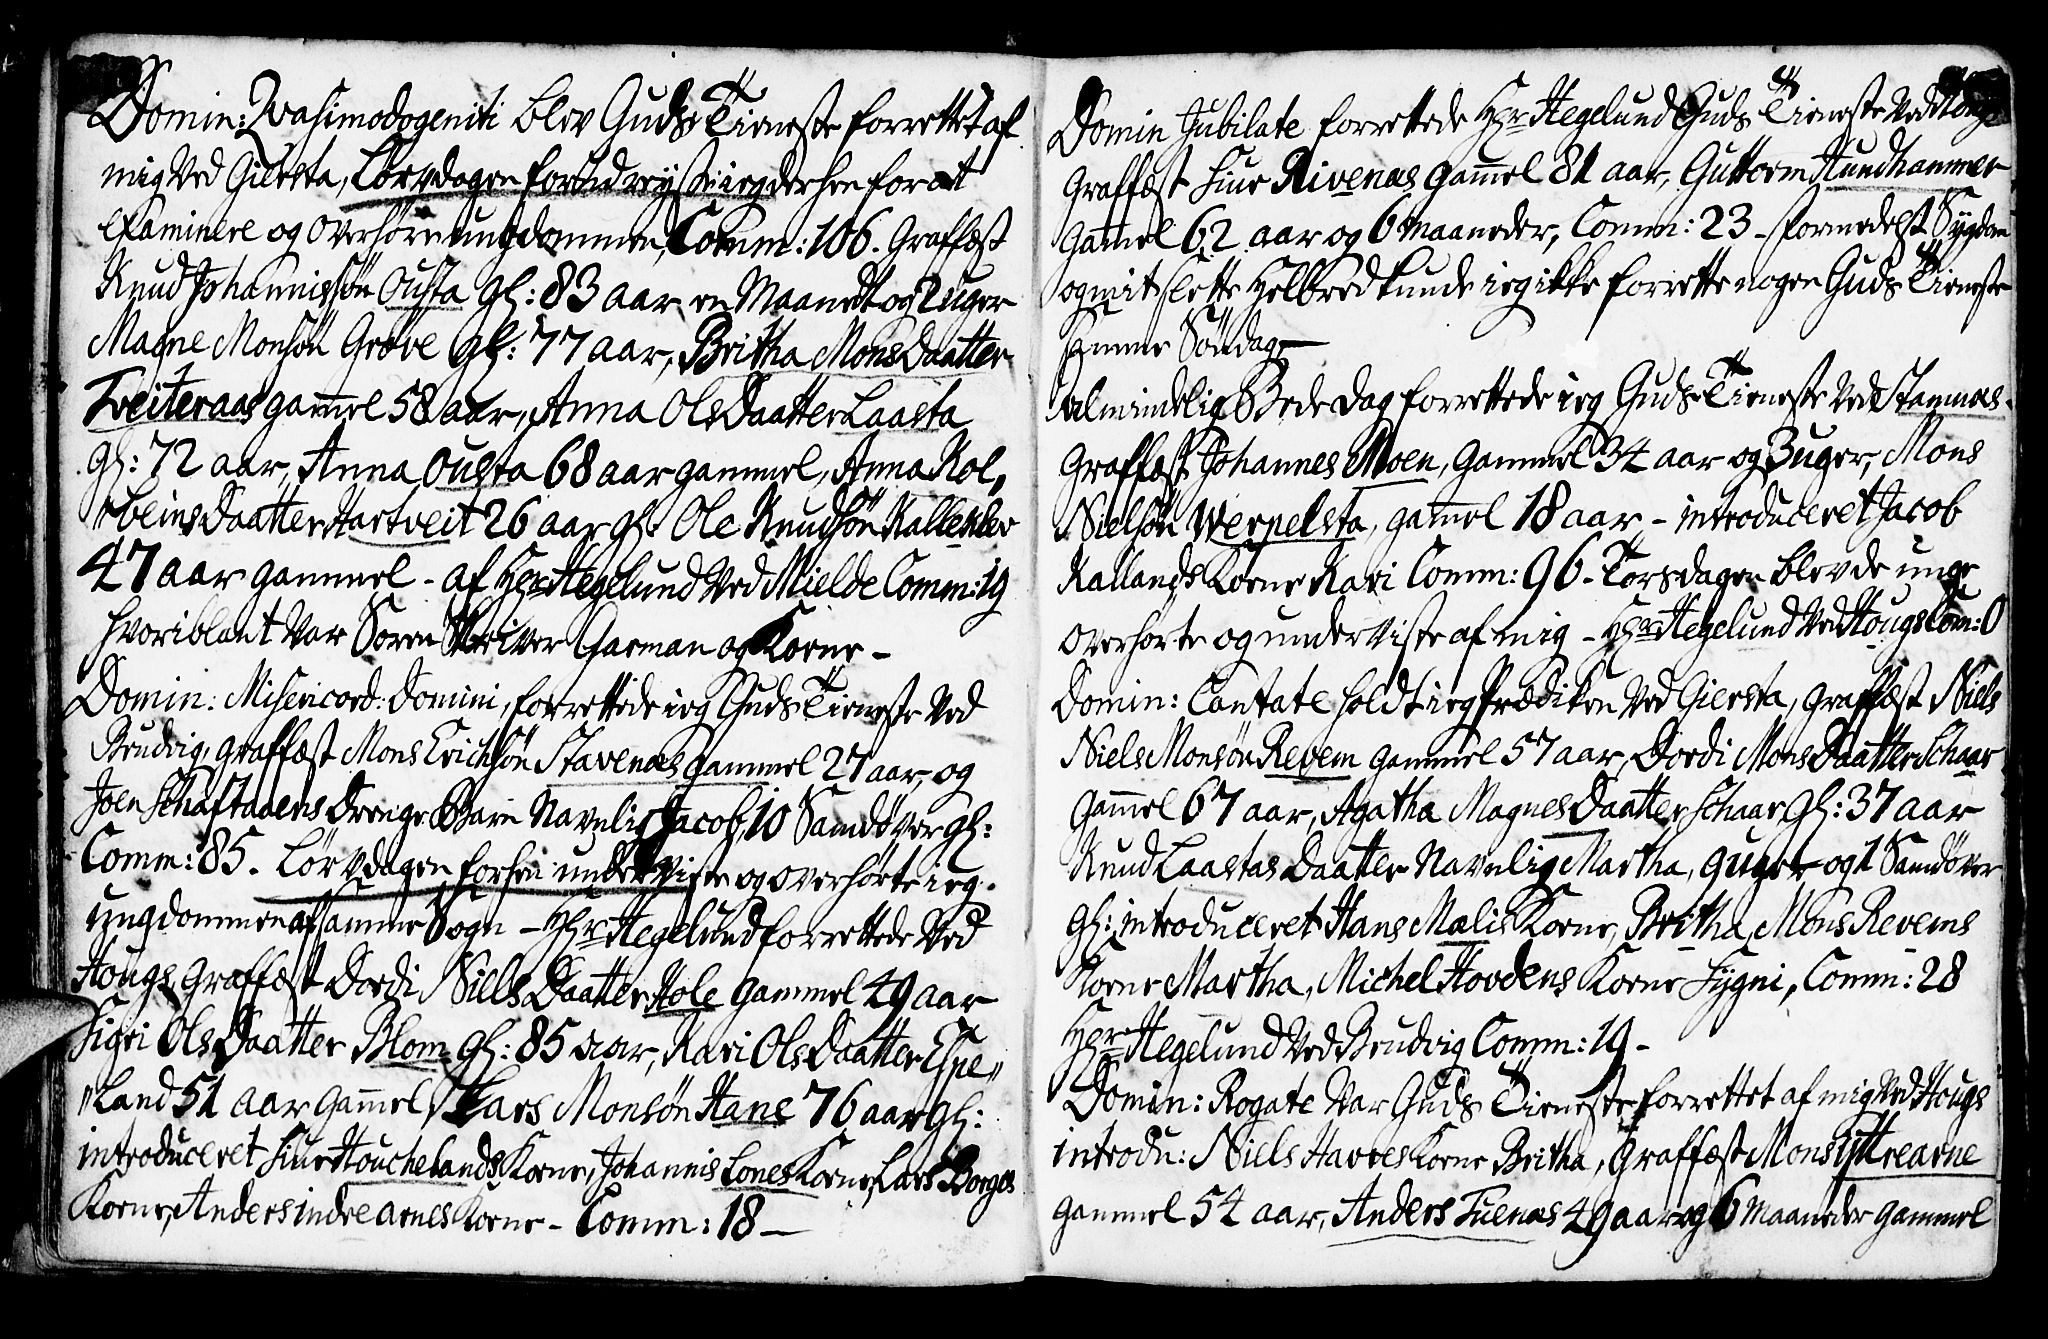 Domin: Qvasimodogeniti blev Guds Tieneste forrettet af
mig ved Giersta, Løverdagen forud reyste ieg derhen for at
examinere og overhøre ungdommen, Comm: 106. Graffæst
Knud Johannissøn Ousta gl: 83 aar en Maanedt og 2 uger
Magne Monsøn Grøve gl: 77 aar, Britha MonsDaatter
Tveiteraas gam̄el 58 aar, Anna OlsDaatter Laasta
gl: 72 aar, Anna Ousta 68 aar gammel, Anna Kol,
,beinsDaatter Hartveit 26 aar gl: Ole Knudsøn Kalleklev
47 aar gammel - af Hr: Hegelund ved Mielde Comm: 19
hvoriblant var Søren Skriver Garman og Kone -
Domin: Misericord: Domini, forrettede ieg Guds Tieneste ved
Brudvig, graffæst Mons Erichsøn Stavenæs gammel 27 aar, og
Joen Schaftaaens Drenge Barn Navnlig Jacob, 10 Samdøver gl:
Comm: 85. Løverdagen forhen underviste og overhørte ieg
ungdommen af samme Sogn - Hr: Hegelund forrettede ved
Hougs, graffæst Dordi NielsDaatter Hole gammel 49 aar
Sigri OlsDaatter Blom gl: 85 aar, Kari OlsDaatter Espe„
„land 51 aar gam̄el, Lars Monsøn Hane 76 aar gl:
introduceret Siur Houchelands Kone, Johannis Lones Kone, Lars Borges
Kone, Anders indre arnes Kone - Comm: 18 -
Domin Jubilate forrettede Hr: Hegelund Guds Tieneste ved Hougs
Graffæst Siur Rivenæs gam̄el 81 aar, Guttorm Hundhammer
gam̄el 62 aar og 6 maaneder, Comm: 23 - formedelst Sygdom
og mit slette Helbred kunde ieg ikke forrette nogen Guds Tieneste
samme Søndag -
Almindelig Bede Dag forrettede ieg Guds Tieneste ved Stamnæs.
Graffæst Johannes Moen, gammel 34 aar og 3 uger, Mons
Nielsøn Wernelsta, gam̄el 18 aar, - introduceret Jacob
Kallands Kone Kari Comm: 96. Torsdagen blev de unge
overhørte og underviste af mig - Hr: Hegelund ved Hougs Com: 0
Domin: Cantate holdt ieg Prædiken ved Giersta, graffæst Niels
Niels Monsøn Revem gammel 57 aar, Dordi MonsDaatter Schaar
gam̄el 67 aar, Agatha MagnesDaatter Schaar gl: 37 aar
Knud Laastas Daatter Navnlig Martha, 9 uger og 1 Samdøver
gl: introduceret Hans Mælis Kone, Britha, Mons Revems
Kone Martha, Michel Hovdens Kone Sygni, Comm: 28
Hr: Hegelund ved Brudvig Comm: 19 -
Domin: Rogate var Guds Tieneste forrettet af mig ved Hougs
introdu: Niels Havres Kone Britha, graffæst Mons Yttrearne
gammel 54 aar, Anders Tuenæs 49 aar og 6 maaneder gammel